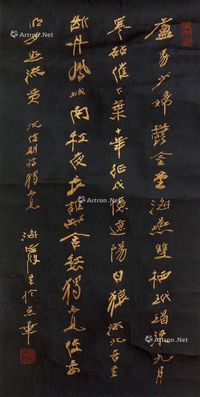 盧家少婦鬱金堂海燕雙棲玳瑁梁九月
寒砧催下葉十年征戍憶遼陽白狼河北音書
斷丹鳳城南秋夜長誰含愁獨不見使妾
明月照流黃 沈佺期詩獨不見